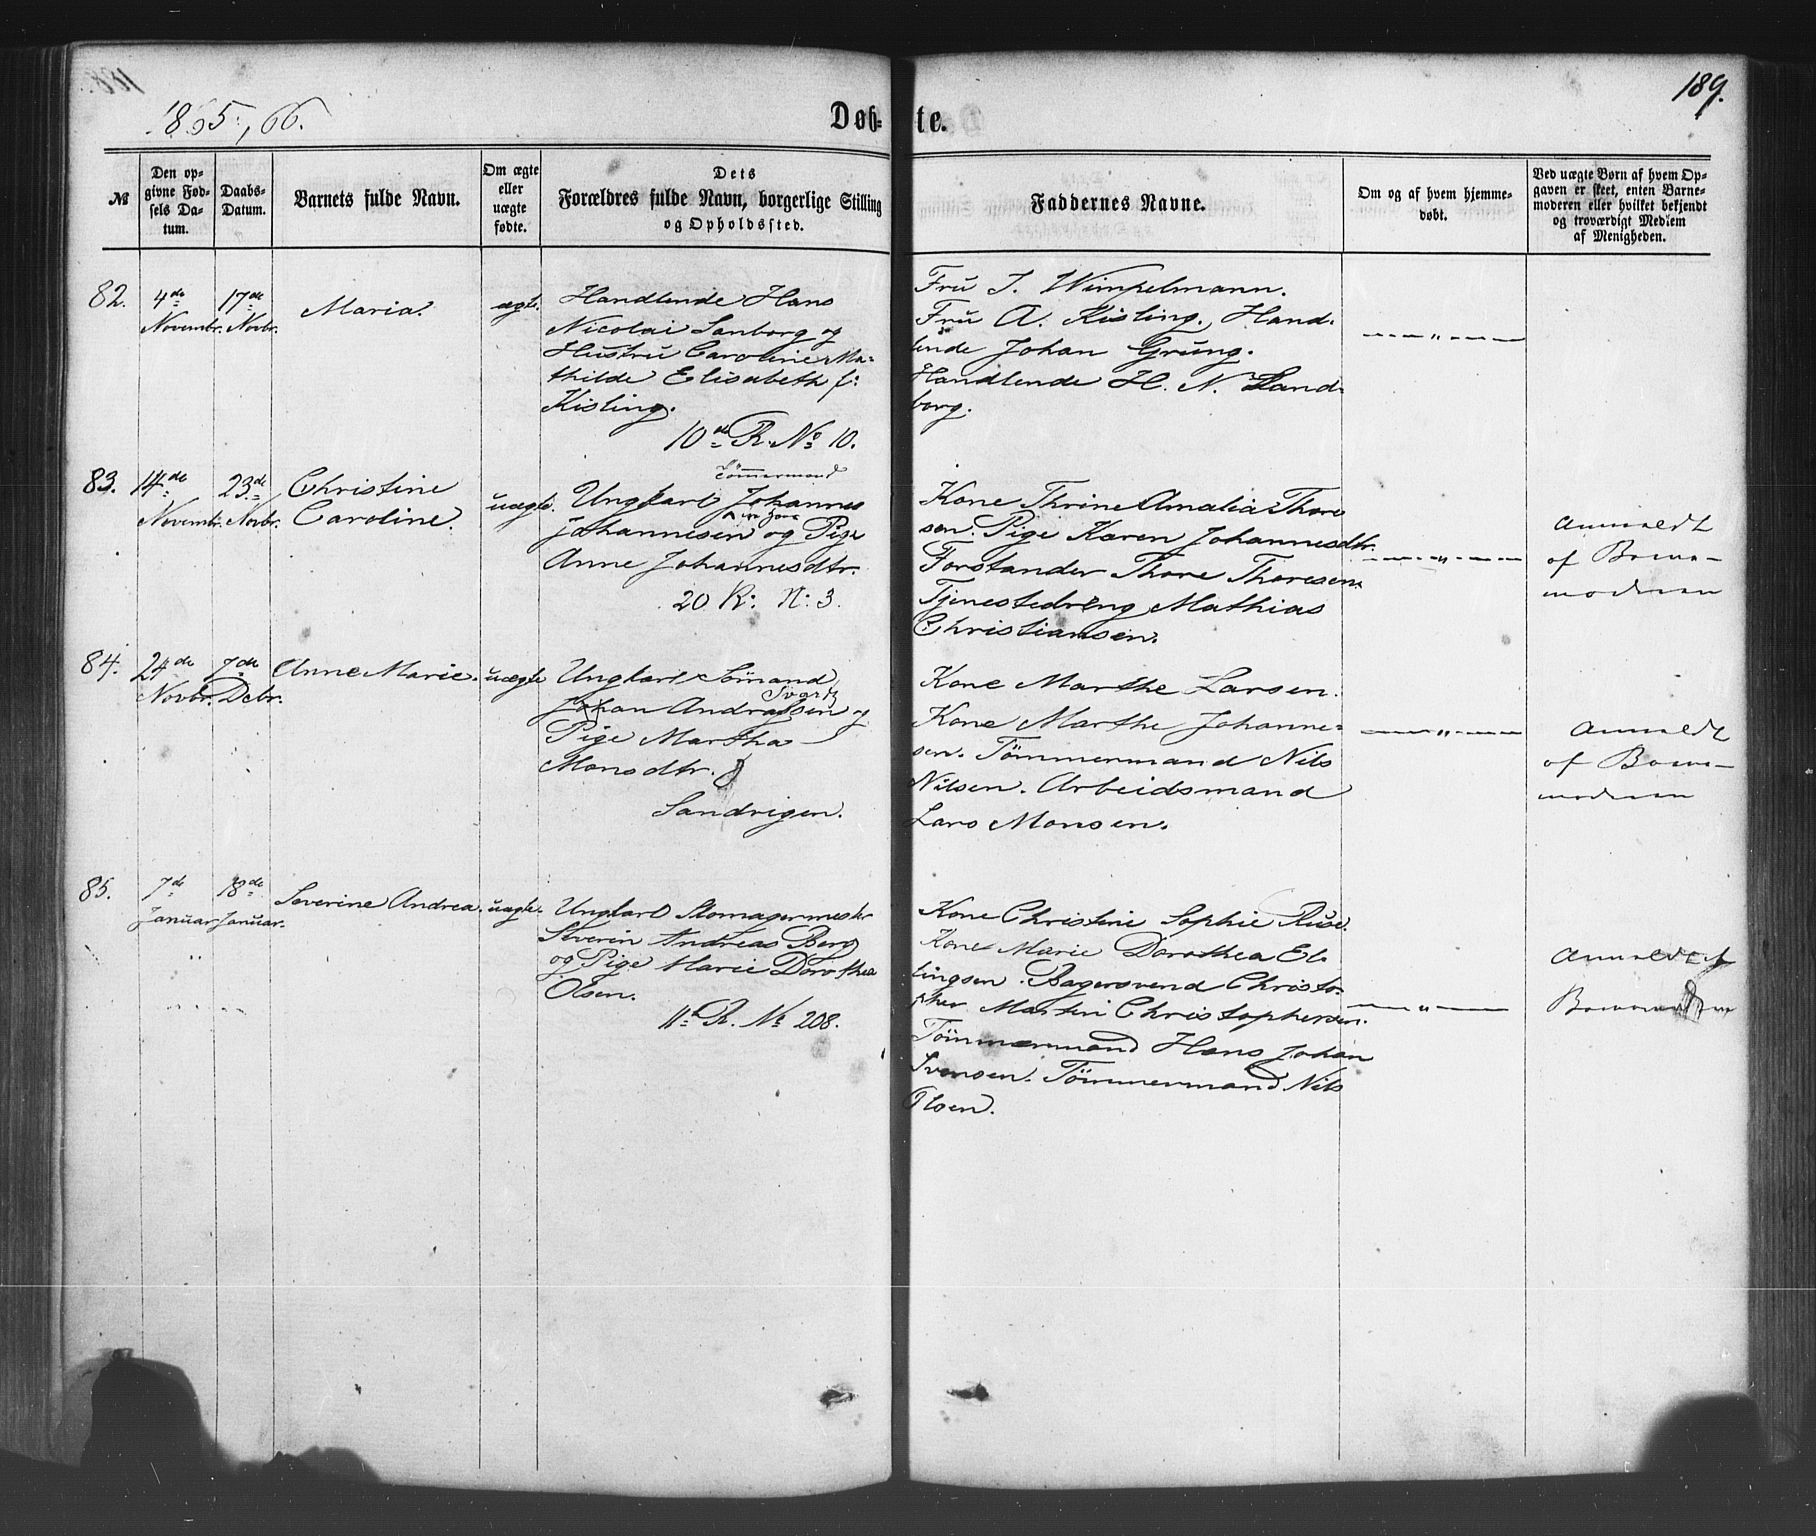 189.
1865, 66.
Døbte.
№
Den opgivne Fødsels Datum.
Daabs-Datum.
Barnets fulde Navn.
Om ægte eller uægte fødte.
Dets Forældres fulde Navn, borgerlige Stilling og Opholdssted.
Faddernes Navne.
Om og af hvem hjemmedøbt.
Ved uægte Børn af hvem Opgaven er skeet, enten Barnemoderen eller hvilket bekjendt og troværdigt Medlem af Menigheden.
82.
4de Novembr.
17de Novbr.
Maria.
ægte.
Handlende Hans
Nicolai Sanborg og
Hustru Caroline Ma-
thilde Elisabeth f:
Kisling.
10de R. No 10.
Fru J. Wimpelmann.
Fru A. Kisling. Hand-
lende Johan Grung.
Handlende H. N. Sand-
borg.
83.
14de Novembr.
23de Novbr.
Christine
Caroline.
uægte.
Tömmermand
Ungkarl Johannes
Johannesen og Pige
Anne Johannesdtr.
20 R: N: 3.
Kone Thrine Amalia Thore
sen. Pige Karen Johannesdtr.
Forstander Thore Thoresen.
Tjenestedreng Mathias
Christiansen.
Anmeldt
af Barne-
moderen
84.
24de Novbr.
7de Decbr.
Anne Marie.
uægte
Ungkarl Sömand
Johan Andreas
og
Pige Martha
Monsdtr.
Sandvigen.
Kone Marthe Larsen.
Kone Marthe Johanne-
sen. Tömmermand Nils
Nilsen. Arbeidsmand
Lars Monsen.
Anmeldt
af Barne-
moderen
85.
7de Januar
18de Januar.
Severine Andrea.
uægte.
Ungkarl Skomagermester
Severin Andreas Berg
og Pige Marie Dorothea
Olsen.
11te R. No 208.
Kone Christine Sophie Ruse.
Kone Marie Dorothea El-
lingsen. Bagersvend Christo-
pher Martin Christophersen.
Tömmermand Hans Johan
Svensen. Tömmermand Nils
Olsen.
Anmeldt af
Barnemoderen